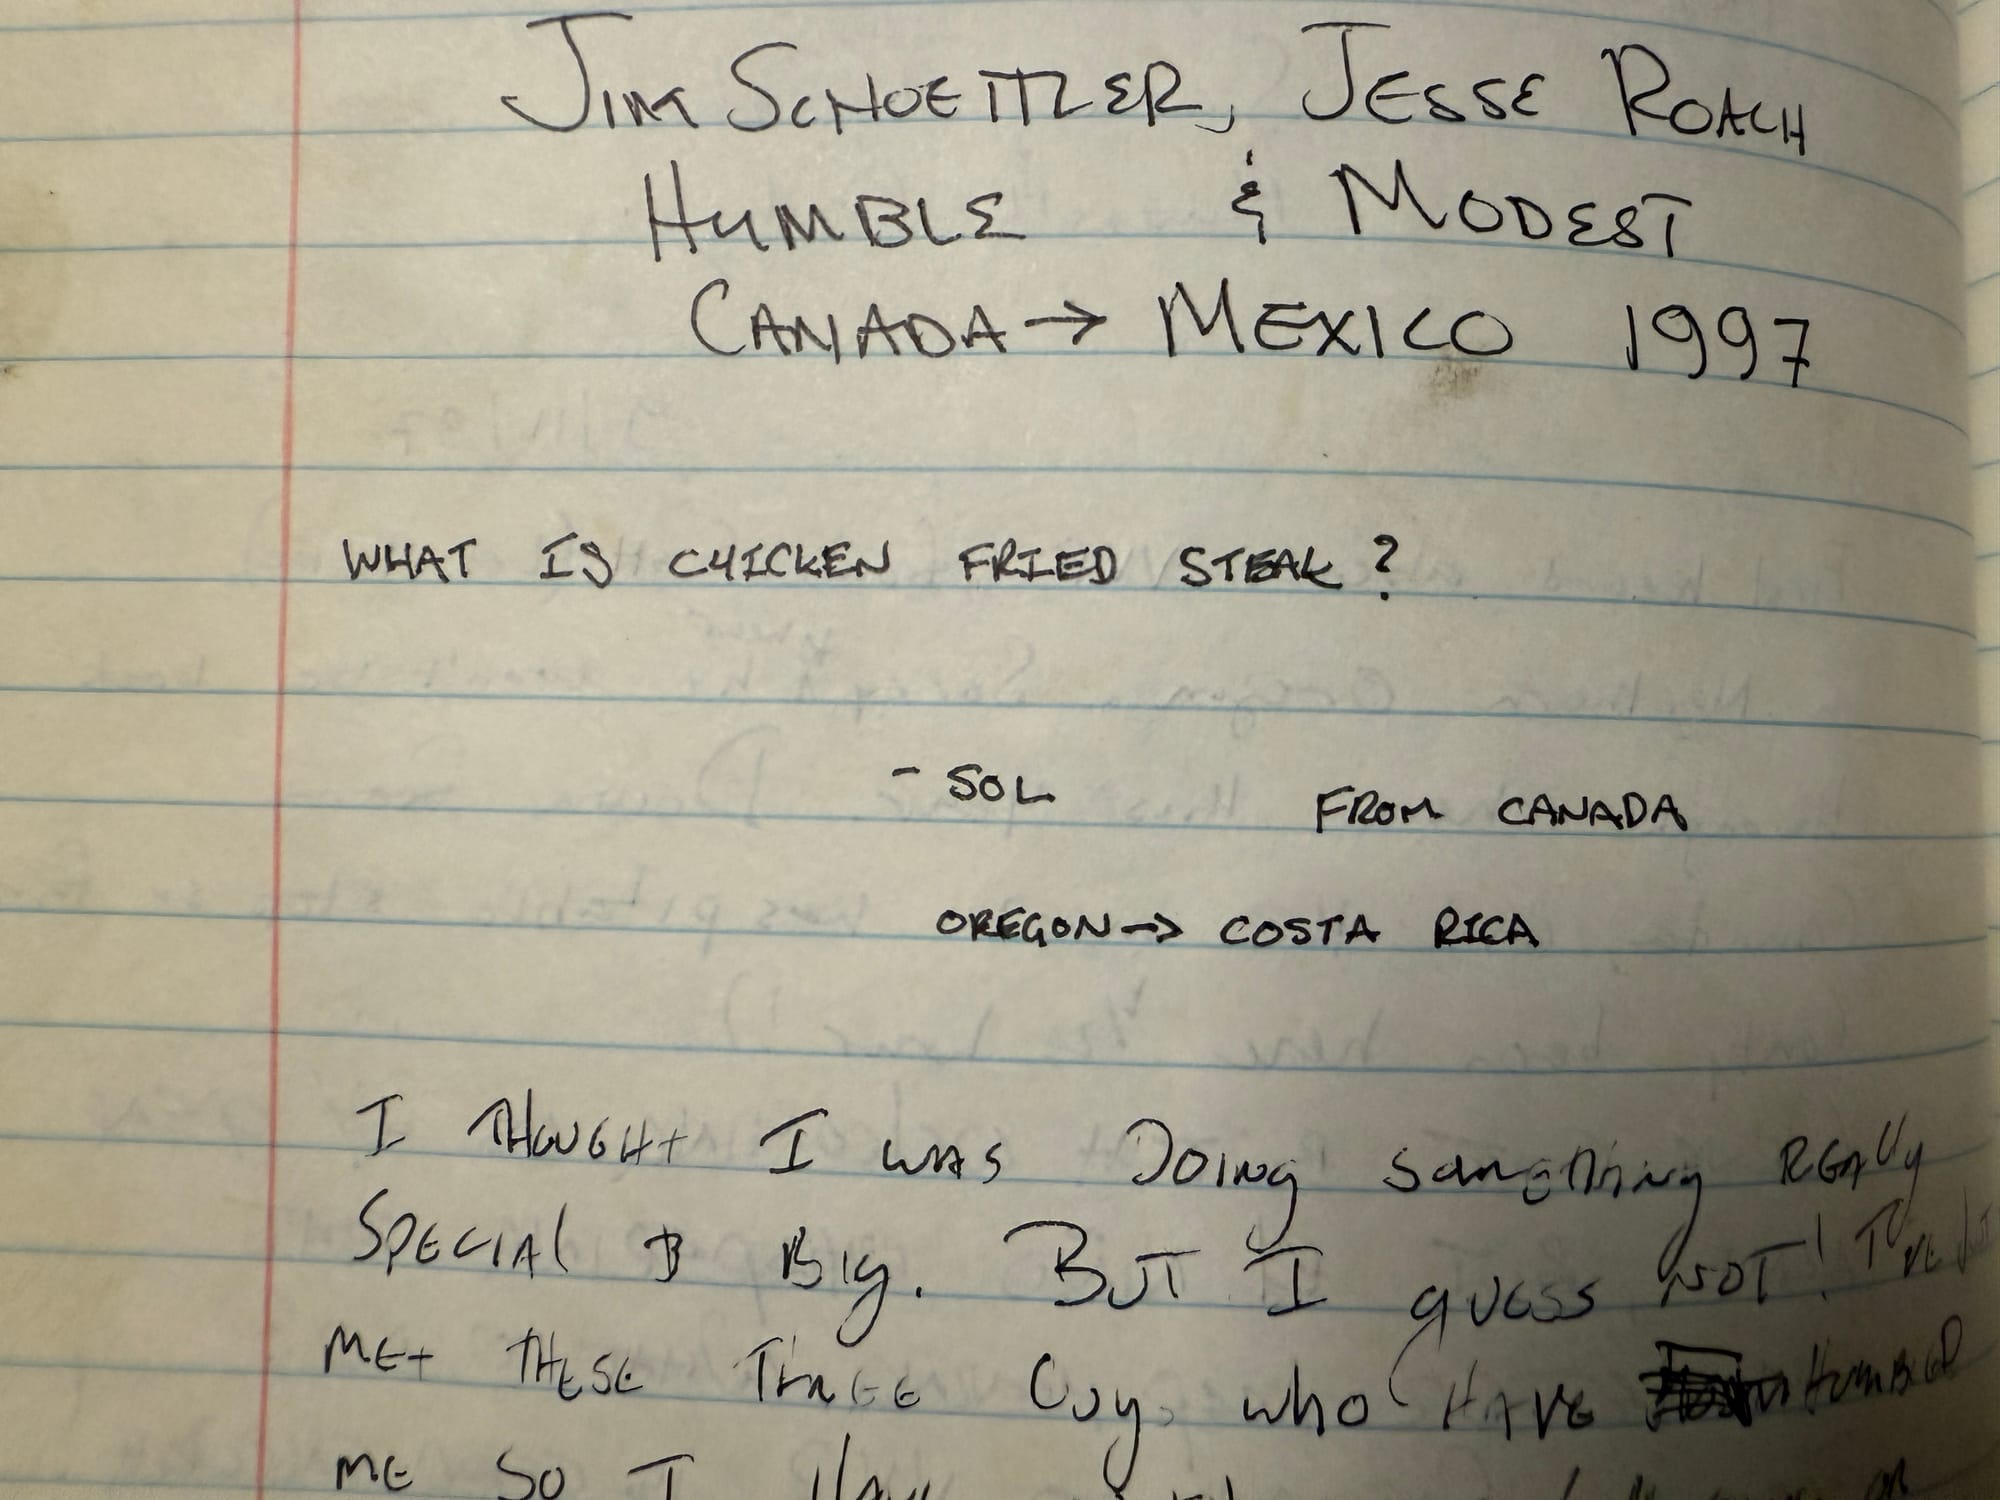 JIM SCHOETTLER, JESSE ROACH
HUMBLE & MODEST
CANADA → MEXICO 1997
WHAT IS CHICKEN FRIED STEAK?
- SOL FROM CANADA
OREGON → COSTA RICA
I THOUGHT I WAS DOING SOMETHING REALLY
SPECIAL & BIG. BUT I GUESS NOT! I'VE JUST
MET THESE THREE GUYS WHO HAVE HUMBLED
ME SO I HAVE